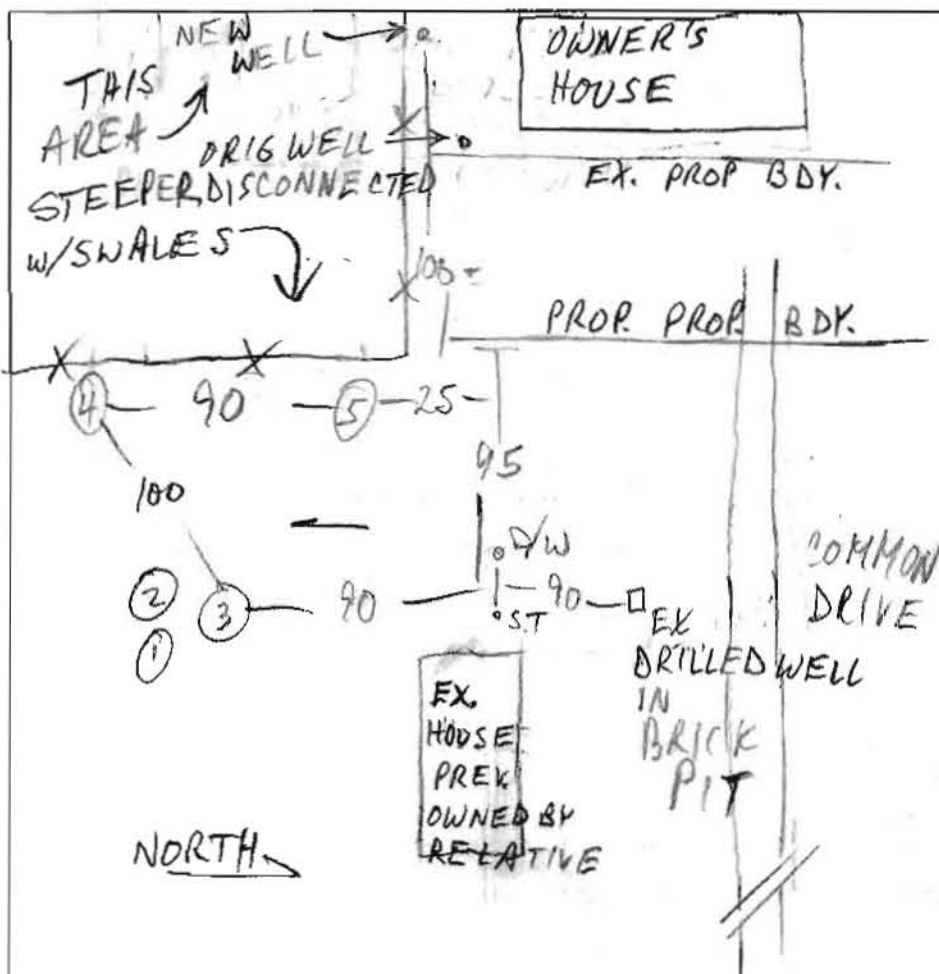 NEW
WELL
THIS
AREA
STEEPER
W/SWALES
ORIG WELL
DISCONNECTED
OWNER'S
HOUSE
EX. PROP BDY.
100 ±
PROP. PROP. BDY.
4
90
5
25
95
100
2
1
3
90
D/W
S.T
90
EX
DRILLED WELL
IN
BRICK
PIT
COMMON
DRIVE
EX.
HOUSE
PREV.
OWNED BY
RELATIVE
NORTH